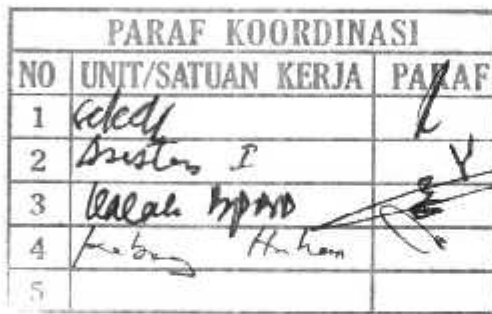 PARAF KOORDINASI
NO UNIT/SATUAN KERJA PARAF
1 Sekda
2 Asisten I
3
4 Kabag Hukum
5